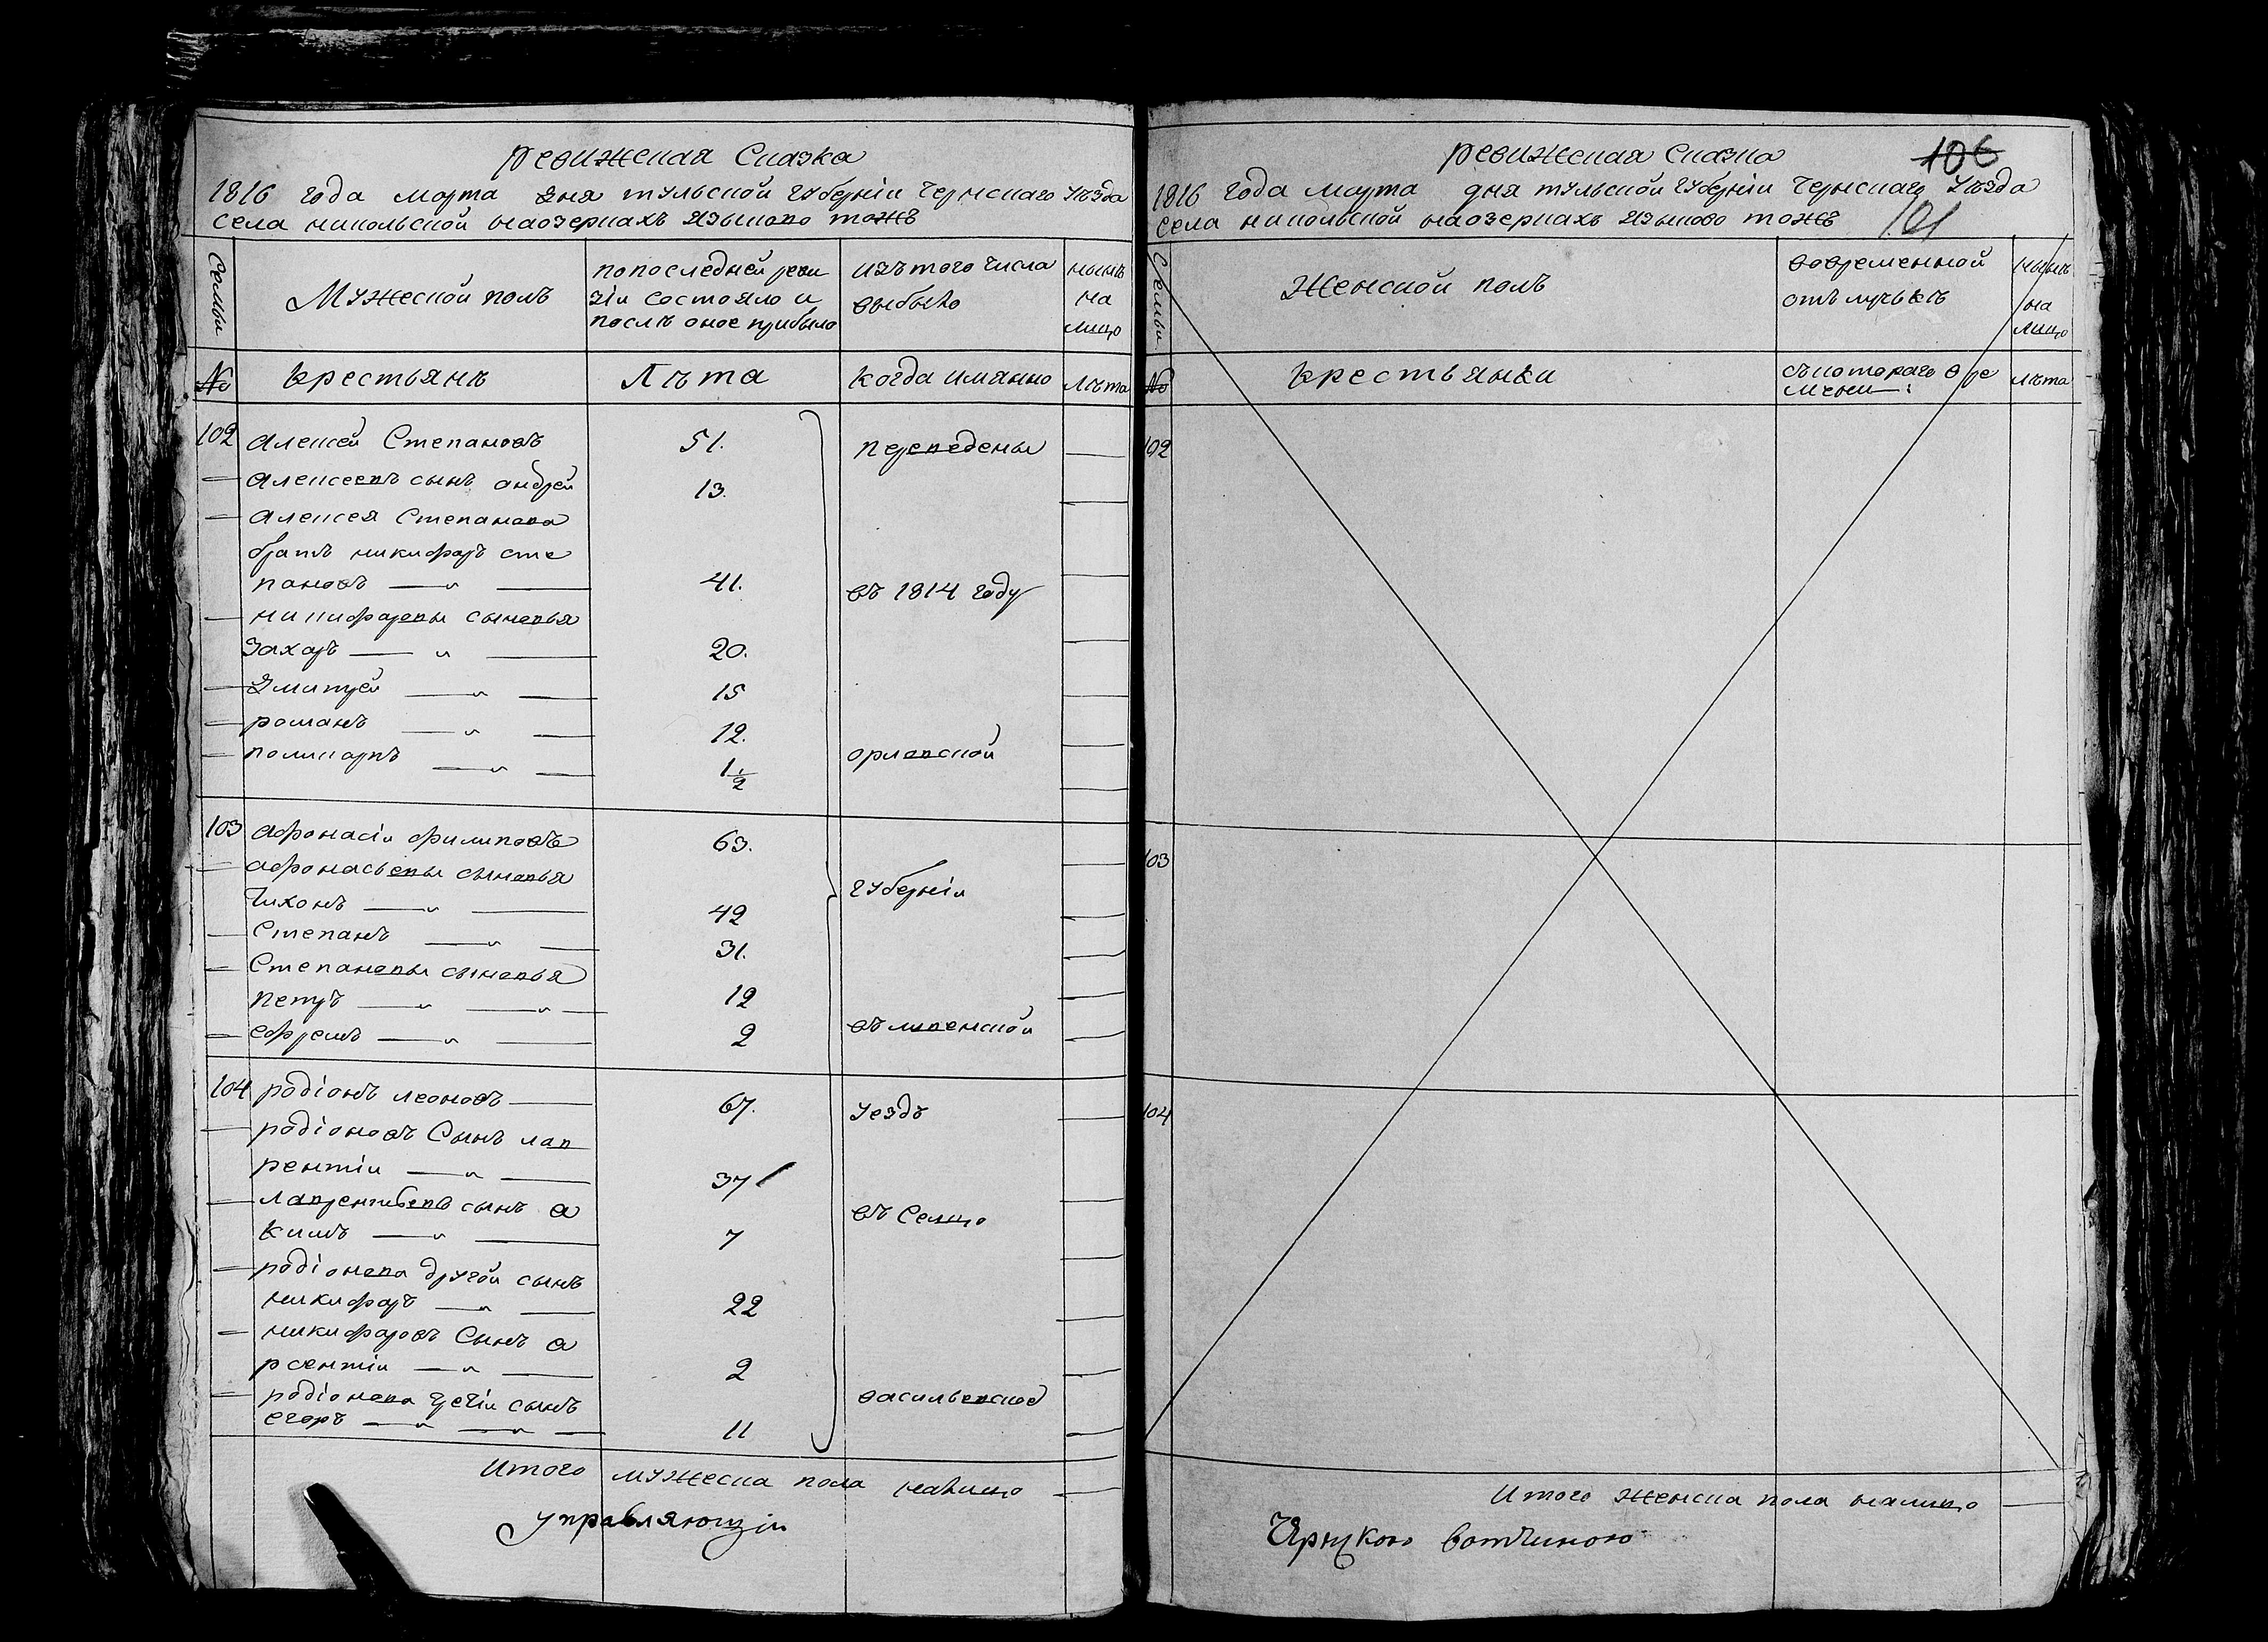 ревижеская Сказка
1816 года марта дня тульской губерніи Чернскаго уѣзда
села никольской наозеркахъ языково тожъ
Семьи
Мужеской полъ
попоследней реви
зіи состояло и
послѣ оное прибыло
изътого числа
выбыло
нынѣ
на
лицо
№
крестьянъ
Лѣта
когда имянно
лѣта
102 алексей Степановъ 51. переведены
алексеевъ сынъ андрей 13.
алексея Степанова
братъ никифаръ сте
пановъ 41. въ 1814 году
никифаровы сыновья
Захаръ 20.
Дмитрей 15
романъ 12.
поликарпъ 1 1/2 орловской
103 афонасіи филиповъ 63.
афонасьевы сыновья губерніи
Тихонъ 42
Степанъ 31.
Степановы сыновья
петръ 12
ефремъ 2 въ ливенской
104 родіонъ леоновъ 67. уездъ
родіоновъ Сынъ лав
рентіи 37
лаврентьевъ сынъ а въ Селцо
кимъ 7
родіонова другой сынъ
никифаръ 22
никифаровъ Сынъ а
рсентіи 2
родіонова третіи сынъ васильевское
егоръ 11
Итого мужеска пола налицо
Управляющіи
ревижеская Сказка
106
1816 года марта дня тульской губерніи Чернскаго уѣзда
101
села никольской наозеркахъ языково тожъ
Семьи
Женской полъ
вовременной
отълучькѣ
нынѣ
на
лицо
№
крестьянки
съкотораго вре
мени
лѣта
102
103
104
Итого женска пола налицо
вотчиною